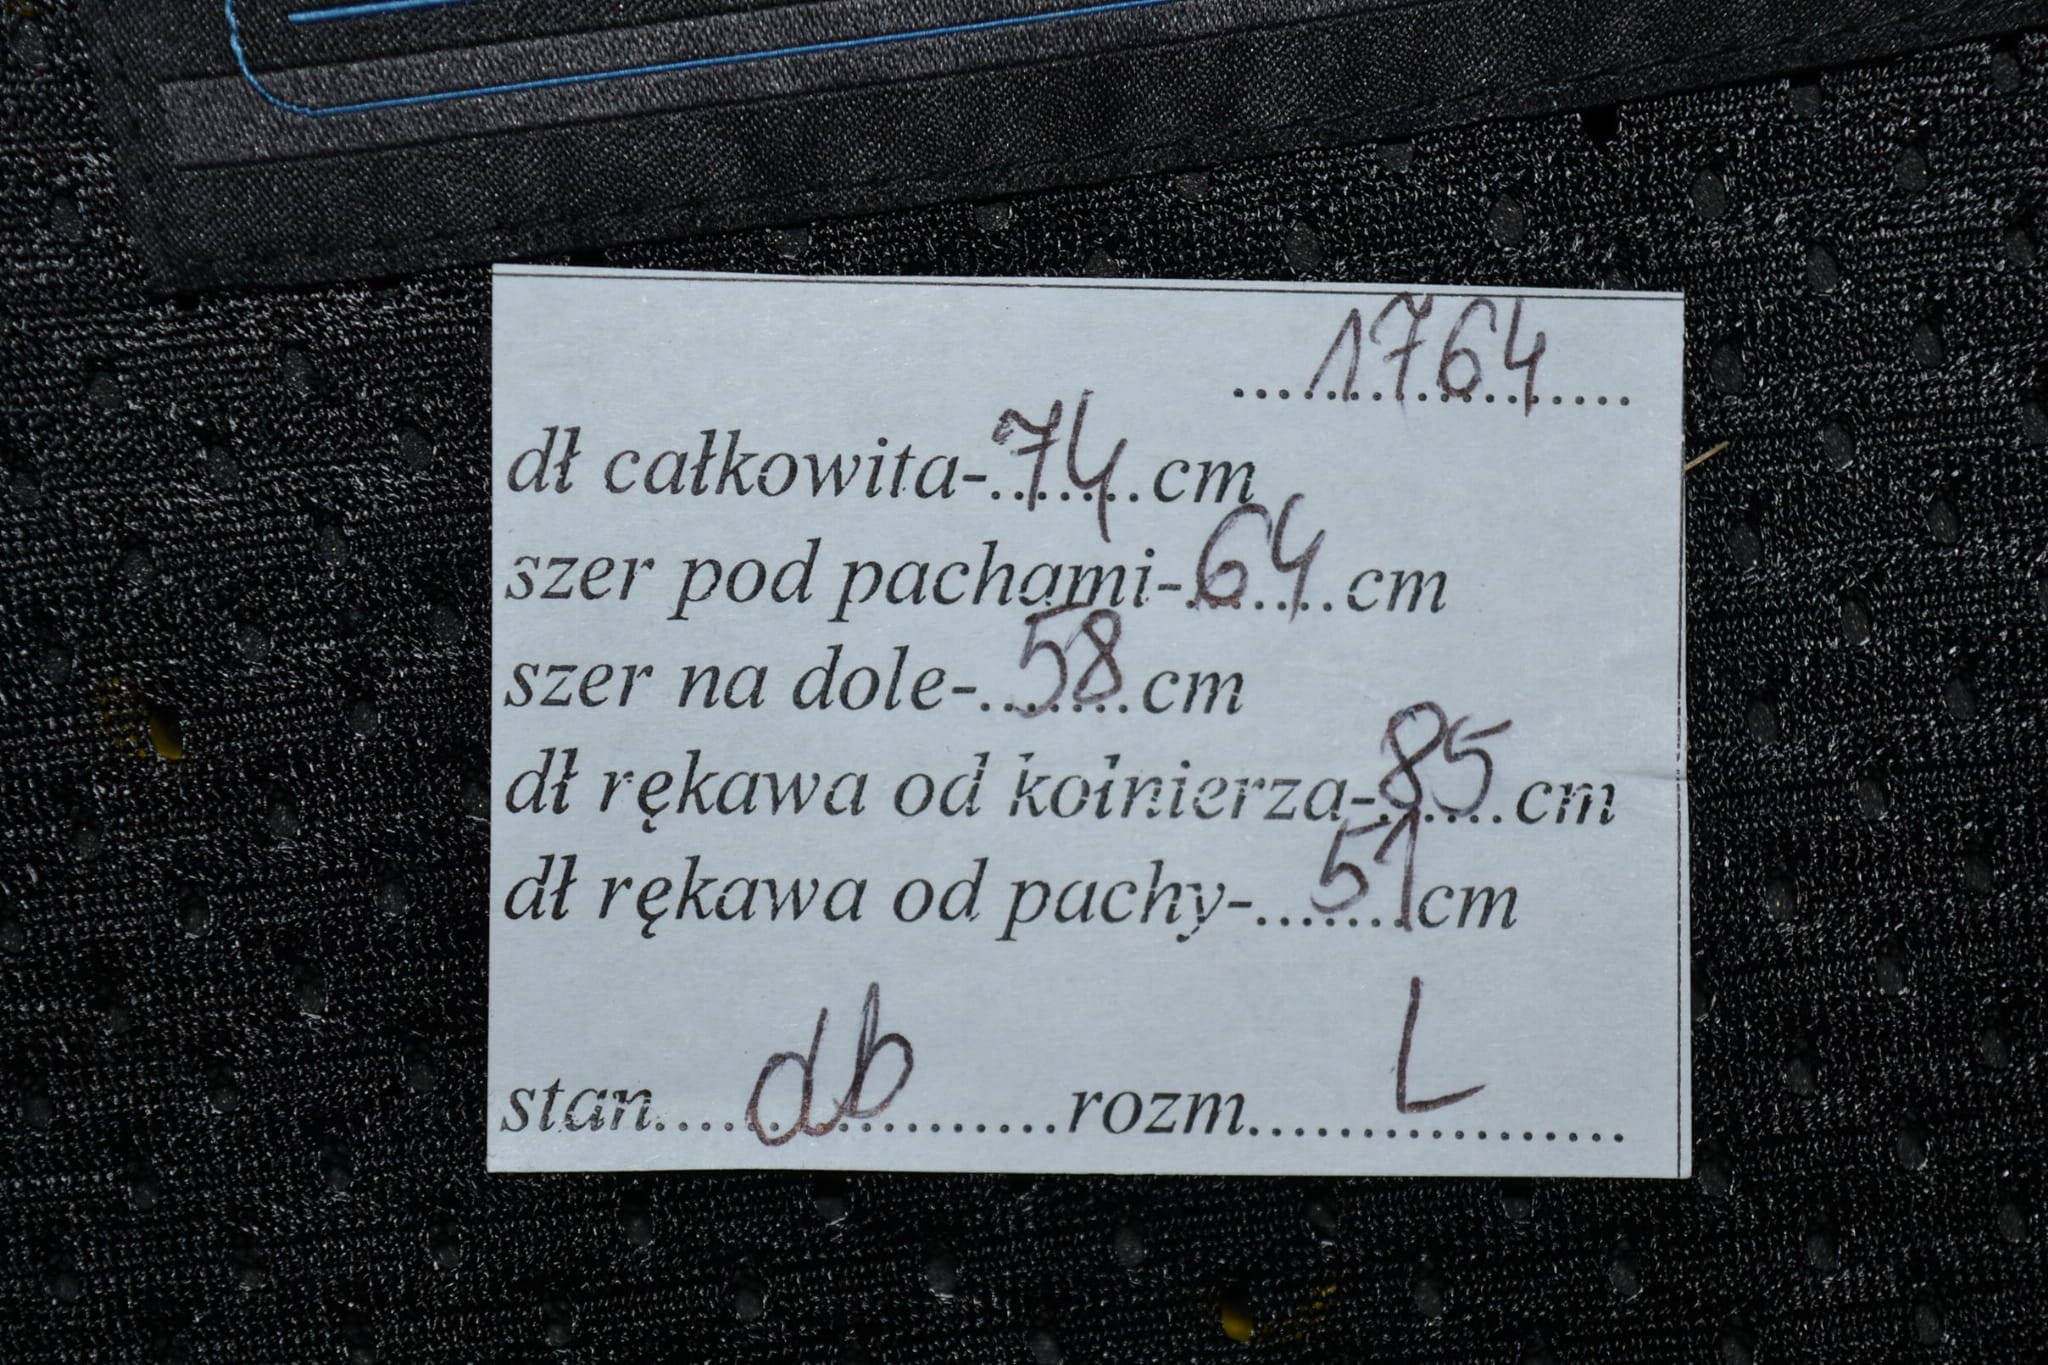 ...1764...
dł całkowita-74 cm
szer pod pachami-64 cm
szer na dole-58 cm
dł rękawa od kołnierza-85 cm
dł rękawa od pachy-51 cm
stan....db....rozm....L....